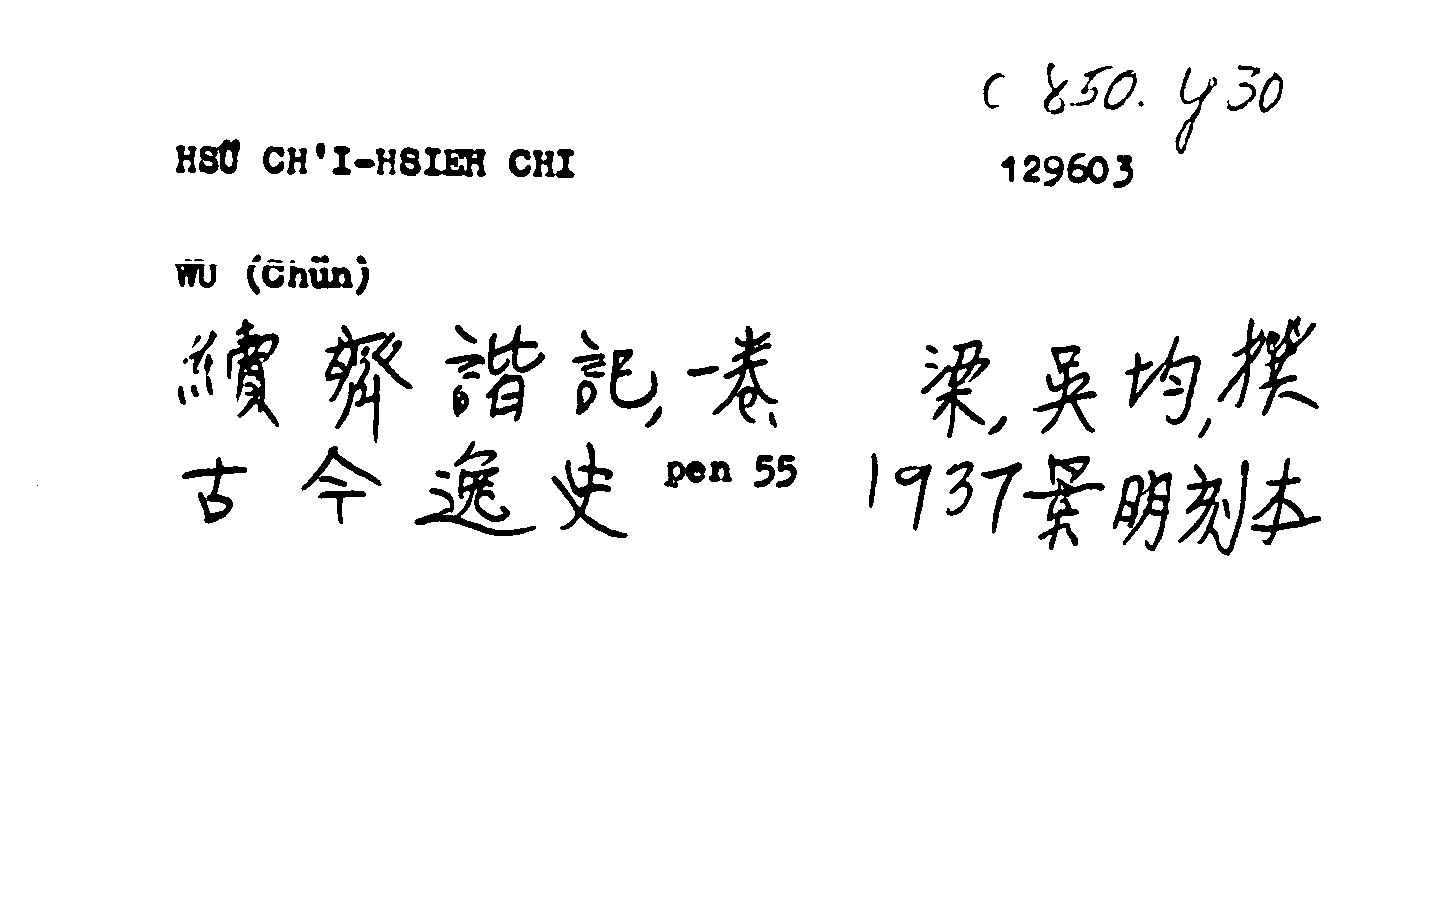 C 850. y30
HSÜ CH'I-HSIEH CHI 129603
WU (Chün)
續齊諧記,一卷 梁,吳均,撰
古今逸史 pen 55 1937景明刻本